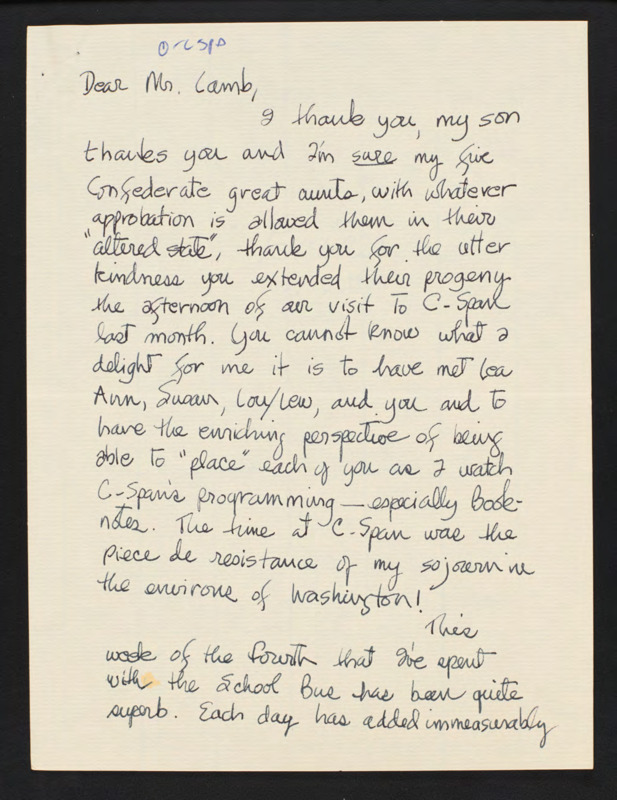 Dear Mr. Lamb,
I thank you, my son
thanks you and I'm sure my five
Confederate great aunts, with whatever
approbation is allowed them in their
"altered state", thank you for the utter
kindness you extended their progeny
the afternoon of our visit to C-Span
last month. You cannot know what a
delight for me it is to have met Lea
Ann, Susan, Lou/Lew, and you and to
have the enriching perspective of being
able to "place" each of you as I watch
C-Span's programming — especially Book-
notes. The time at C-Span was the
piece de resistance of my sojourn in
the environs of Washington!
This
week of the fourth that I've spent
with the School Bus has been quite
superb. Each day has added immeasurably